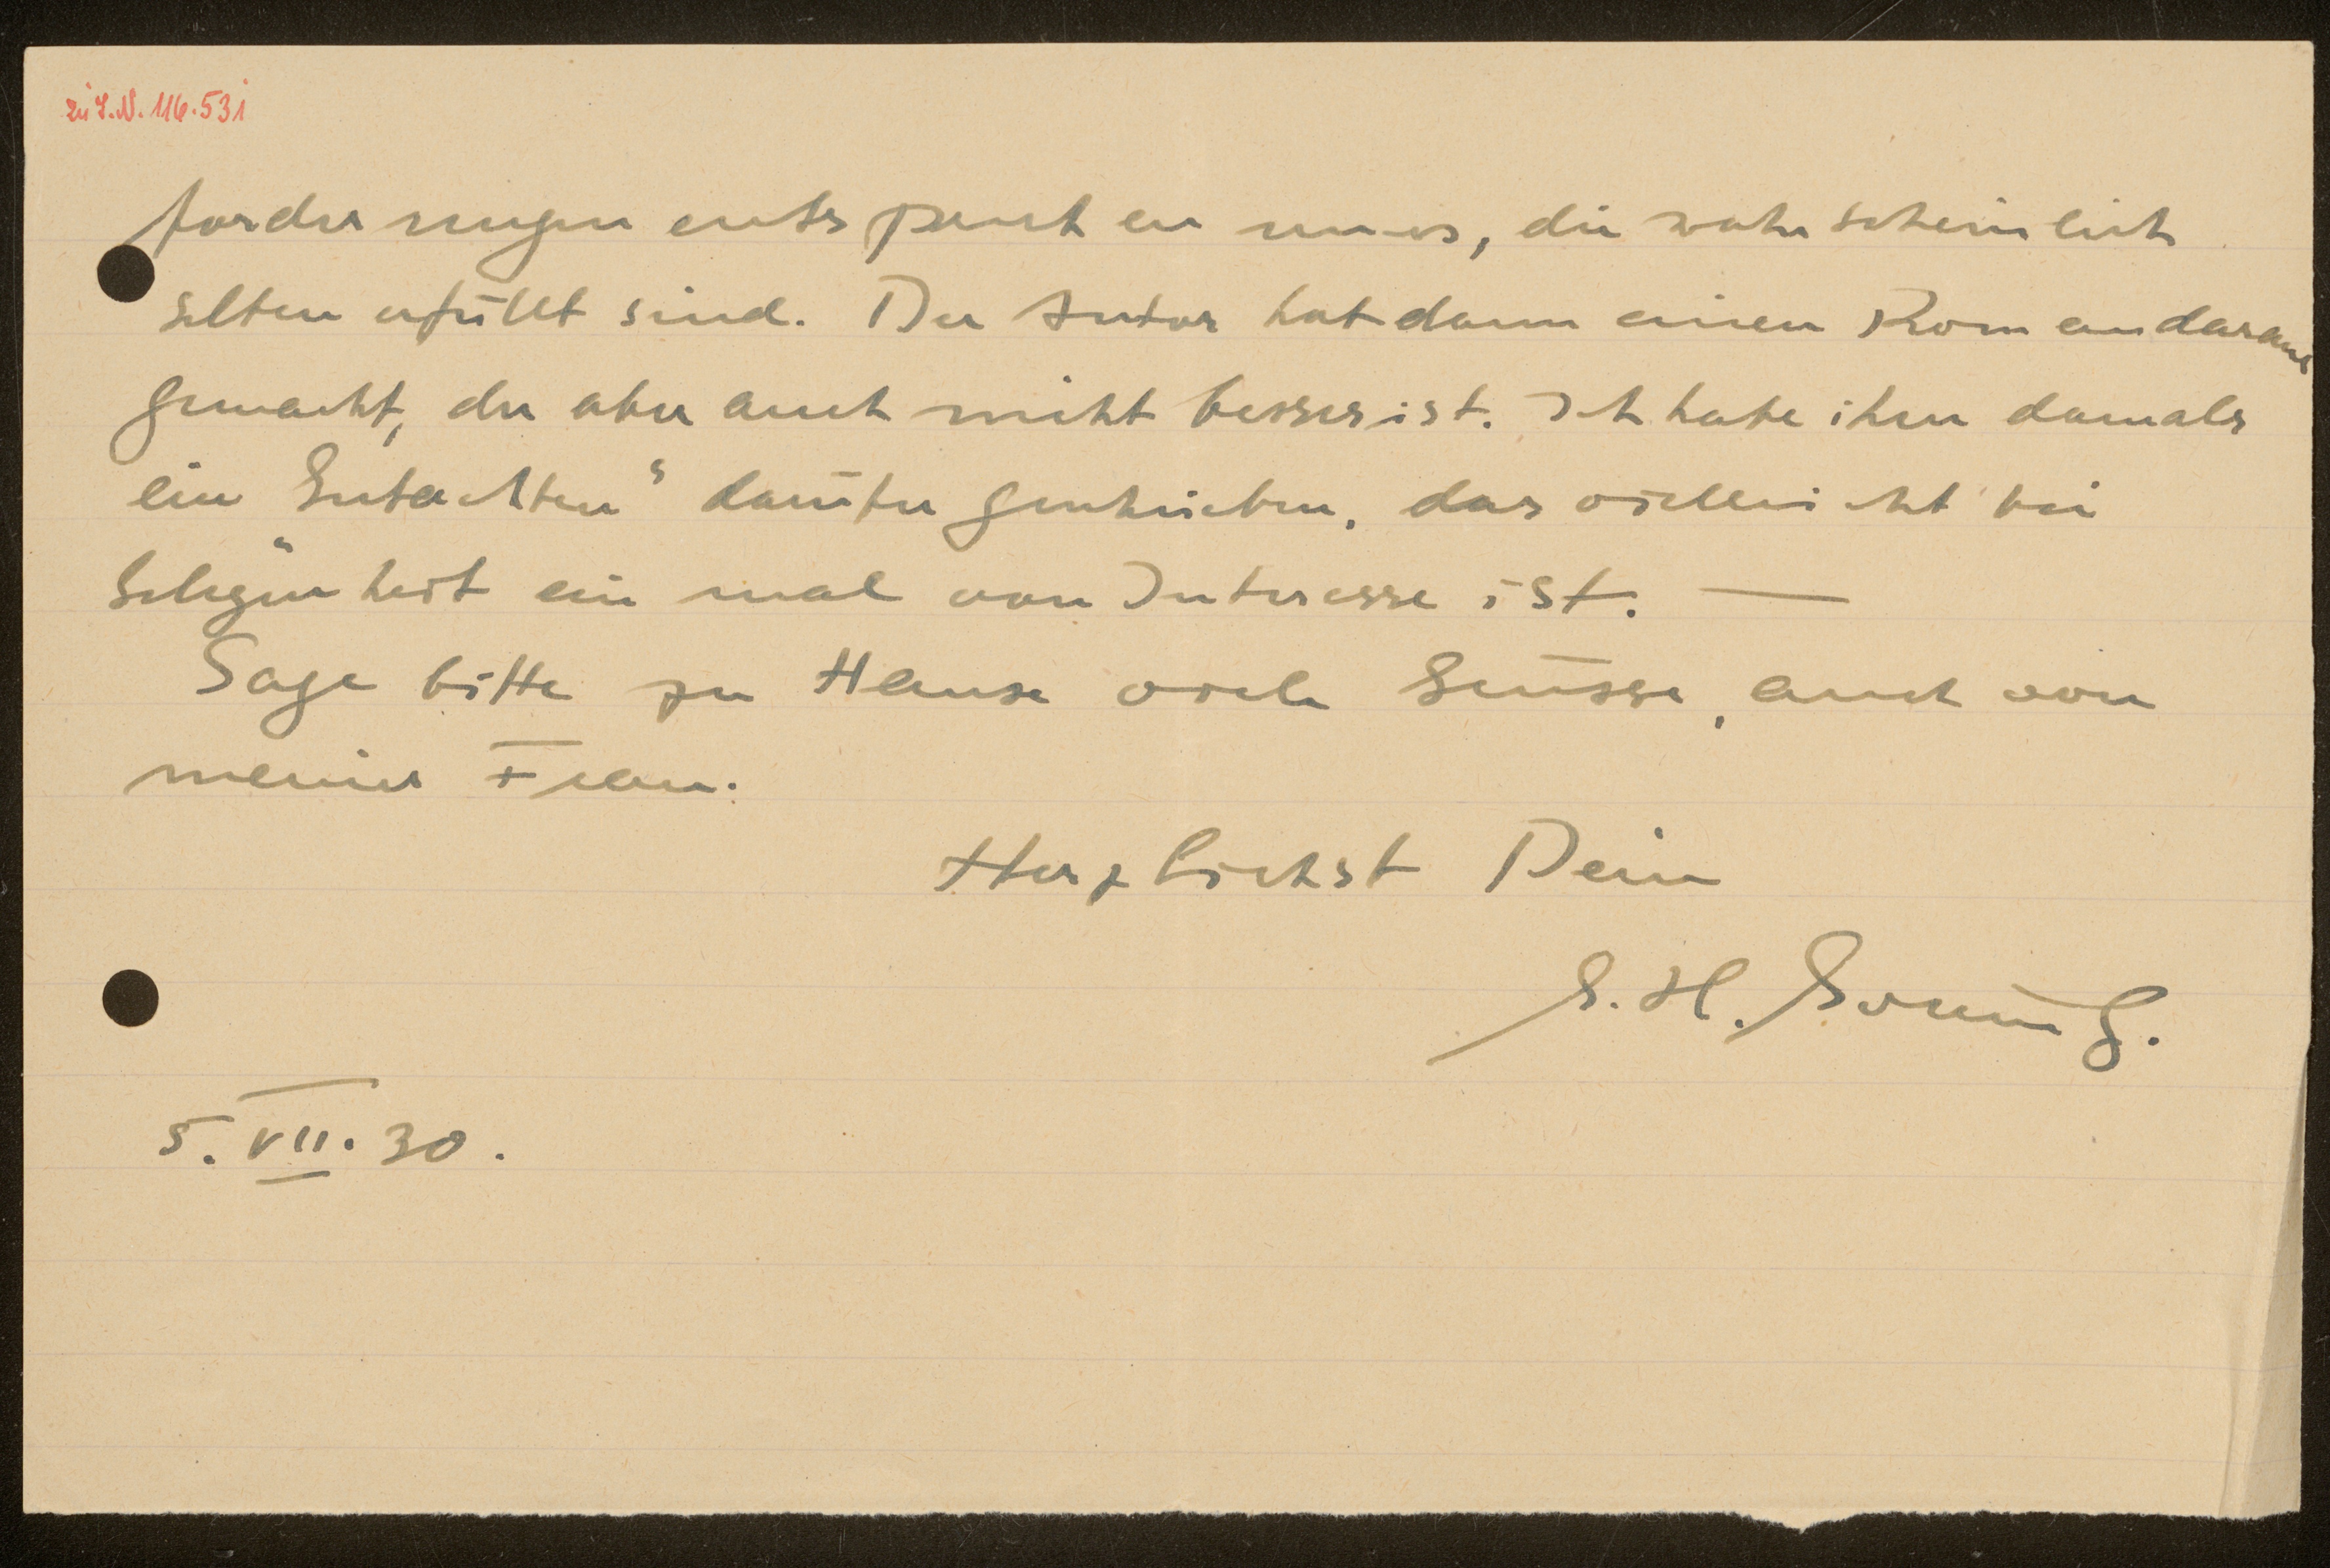 zu I.N. 116.531
forderungen entsprechen muss, die wahrscheinlich
selten erfüllt sind. Der Autor hat dann einen Roman daraus
gemacht, der aber auch nicht besser ist. Ich habe ihm damals
ein "Gutachten" darüber geschrieben, das vielleicht bei
Gelegenheit ein mal von Interesse ist. —
Sage bitte zu Hause viele Grüsse, auch von
meiner Frau.
Herzlichst Dein
G. H.
5. VII. 30.